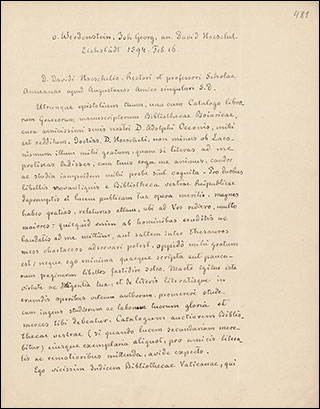 481
v. Werdenstein, Joh. Georg, an David Hoeschel.
Eichstädt 1594. Feb. 16.
D. Davidi Hoeschelio Rectori et professori Scholae
Annaeanae apud Augustanos Amico singulari S. D.
Utramque epistolam tuam, una cum Catalogo libro-
rum Graecorum manuscriptorum Bibliothecae Boiaricae,
cura amicissimi senis nostri D. Adolphi Occonis, mihi
est redditum. Doctiss. D. Hoescheli, non minus ob Laco-
nismum illum mihi gratum, quam si literas ad me
prolixas dedisses, cum tuus erga me animus, candor
ac studia iampridem mihi probe sint cognita. Pro duobus
libellis novantiquis e Bibliotheca vestrae Reipublicae
depromptis et lucem publicam tua opera meritis, magnas
habeo gratias, relaturus etiam, ubi ad Vos rediero, multo
maiores: quicquid enim ab hominibus eruditis ac
laudatis ad me mittitur, aut saltem inter thesauros
meos chartaceos adservari potest, oppido mihi gratum
est; neque ego minima quaeque scripta aut pauca-
rum paginarum libellos fastidire soleo. Macte igitur ista
virtute ac diligentia tua, et de literis literatisque in
eruendis operibus veterum authorum, promerere stude,
cum ingens studiorum ac laborum tuorum gloria et
merces tibi debeatur. Catalogum auctiorem Biblio-
thecae vestrae (si quando lucem secundariam mere-
bitur) eiusque exemplaria aliquot, pro amicis litera-
tis ac remotioribus mittenda, avide expecto.
Ego vicissim Indicem Bibliothecae Vaticanae, qui